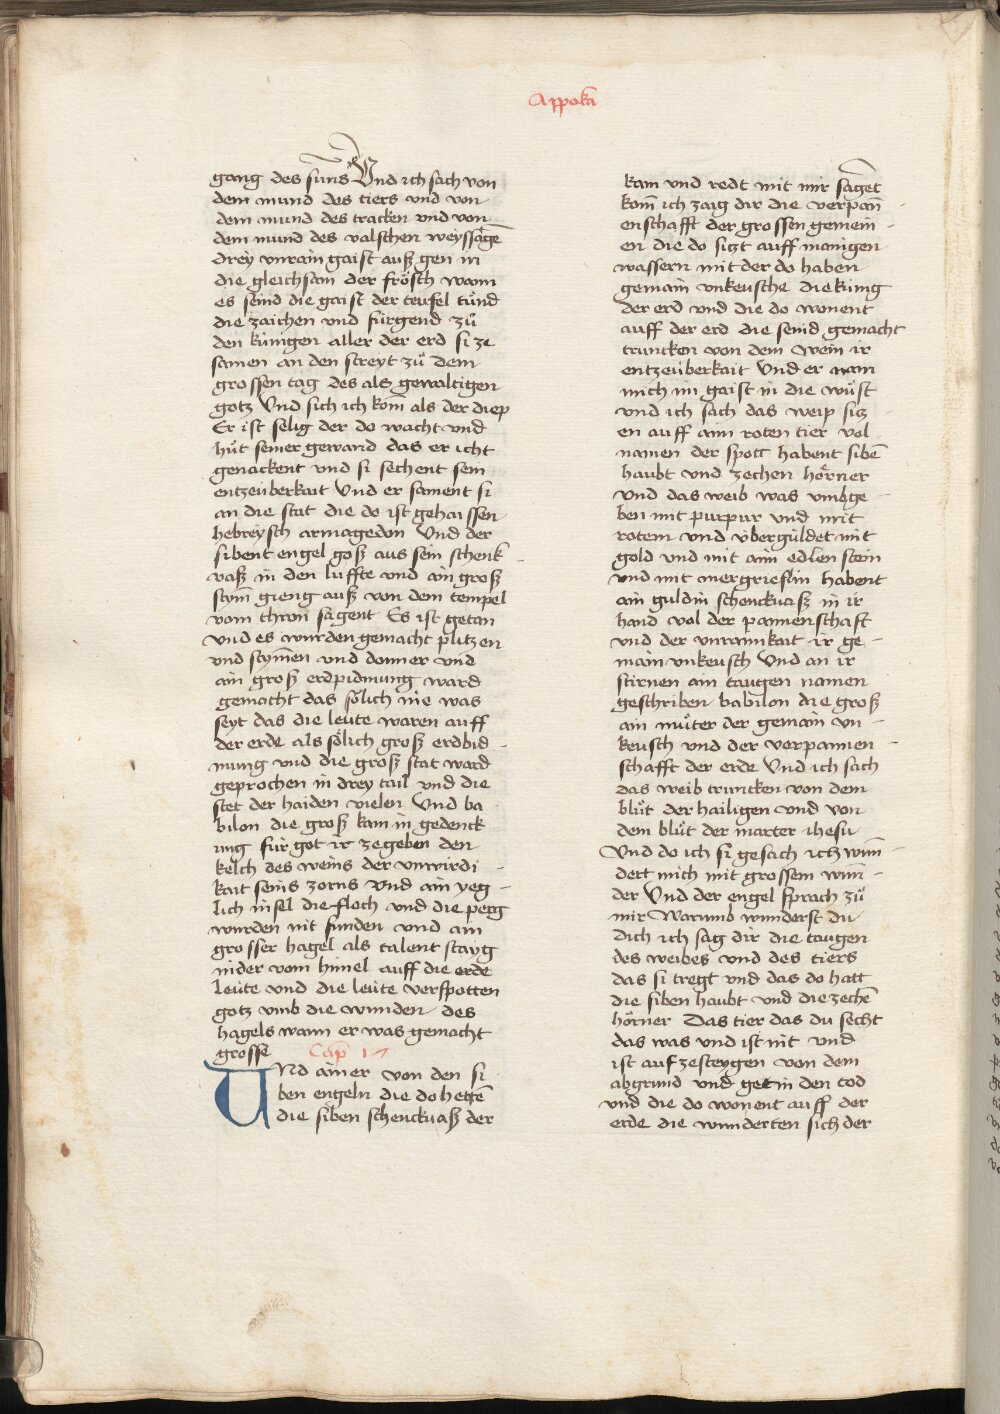 Appokā
gang des sūns Und ich sach von
dem mund des tiers und von
dem mund des tracken und von
dem mund des valschen weyssagē
drey vnrain gaist auß gen in
die gleichsam der frösch wann
es seind die gaist der teufel tůnd
die zaichen und fürgend zů
den künigen aller der erd si ze
samen an den streyt zů dem
grossen tag des als gewaltigen
gotz Und sich ich kom als der diep
Er ist selig der do wacht und
hůt seiner gewand das er icht
genackent und si sechent sein
entzeüberkait Und er sament si
an die stat die do ist gehaissen
hebreysch armagedon Und der
sibent engel goß aus sein schenk
vaß in den luffte und ain groß
stym gieng auß von dem tempel
vom thron sagent Es ist getan
Und es wurden gemacht plitzen
und stymen und donner und
ain groß erdpidmung ward
gemacht das sölich nie was
seyt das die leüte waren auff
der erde als sölich groß erdbid-
mung und die groß stat ward
geprochen in drey tail und die
stet der haiden vielen Und ba-
bilon die groß kam in gedenck
ung für got ir zegeben den
kelch des weins der unwirdi-
kait seins zorns Und ain yeg-
lich insel die floch und die perg
wurden nit funden und ain
grosser hagel als talent stayg
nider vom himel auff die erde
leüte und die leüte verspotten
gotz umb die wunden des
hagels wann er was gemacht
grosse Cap 17
Und ainer von den si
ben engeln die do hettē
die siben schenckvaß der
kam und redt mit mir sagēt
kom ich zaig dir die verpān-
enschafft der grossen gemein-
en die do sizt auff manigen
wassern mit der do haben
gemain vnkeusche die küng
der erd und die do wonent
auff der erd die seind gemacht
truncken von dem wein ir
entzeüberkait Und er nam
mich im gaist in die wüst
und ich sach das weip siz-
en auff aim roten tier vol
namen der spott habent sibē
haubt und zechen hörner
Und das weib was umbge-
ben mit purpur und mit
rotem und vbergüldet mit
gold und mit aim edlen stein
und mit mergrieslin habent
ain guldin schenckvaß in ir
hand vol der pannenschaft
und der vnrainikait ir ge-
main vnkeusch Und an ir
stirnen ain taugen namen
geschriben babilon die groß
ain můter der gemain vn-
keusch und der verpannen-
schafft der erde Und ich sach
das weib truncken von dem
blůt der hailigen und von
dem blůt der marter ihesu
Und do ich si gesach ich wun-
dert mich mit grossem wun-
der Und der engel sprach zů
mir Warumb wunderst du
dich ich sag dir die taugen
des weibes und des tiers
das si tregt und das do hatt
die siben haubt und die zechē
hörner Das tier das du secht
das was und ist nit und
ist auf zesteygen von dem
abgrund und get in den tod
und die do wonent auff der
erde die wunderten sich der